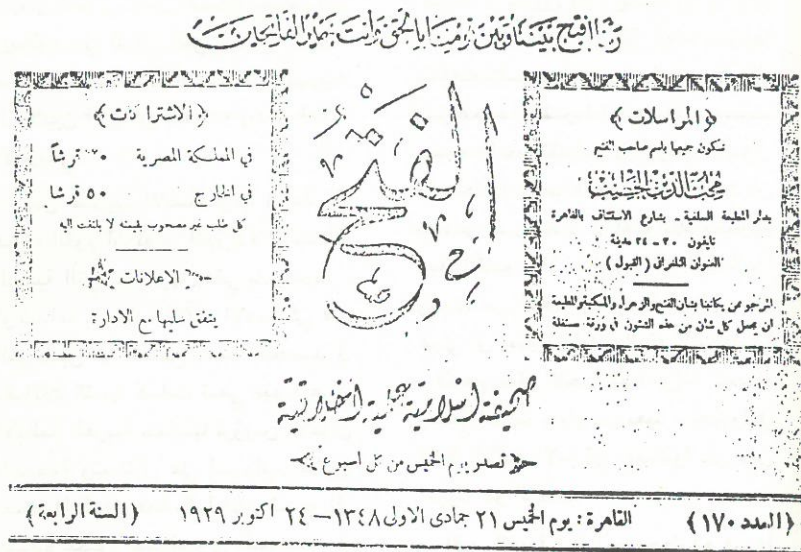 ربنا افتح بيننا وبين قومنا بالحق وأنت خير الفاتحين
﴿ المراسلات ﴾
تكون جميعها باسم صاحب الفتح
محب الدين الخطيب
بدار المطبعة السلفية ـ بشارع الاستئناف بالقاهرة
تليفون ٣٠ ـ ٢٤ مدينة
العنوان التلغرافي ( القبول )
المرجو ممن يكاتبنا بشأن الفتح والزهراء والمكتبة والمطبعة
ان يجعل كل شأن من هذه الشئون في ورقة مستقلة
الفتح
﴿ الاشتراكات ﴾
في المملكة المصرية قرشاً
في الخارج ٥٠ قرشا
كل طلب غير مصحوب بقيمته لا يلتفت اليه
الاعلانات
يتفق عليها مع الادارة
صحيفة إسلامية علمية أخلاقية
تصدر يوم الخميس من كل أسبوع
﴿ العدد ١٧٠ ﴾ القاهرة : يوم الخميس ٢١ جمادى الاولى ١٣٤٨ — ٢٤ اكتوبر ١٩٢٩ ﴿ السنة الرابعة ﴾